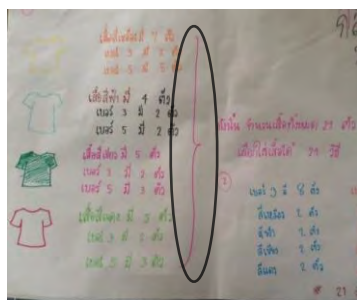 เสื้อสีเหลืองมี 7 ตัว
เบอร์ 3 มี 2 ตัว
เบอร์ 5 มี 5 ตัว
เสื้อสีฟ้า มี 4 ตัว
เบอร์ 3 มี 2 ตัว
เบอร์ 5 มี 2 ตัว
เสื้อสีเขียว มี 5 ตัว
เบอร์ 3 มี 2 ตัว
เบอร์ 5 มี 3 ตัว
เสื้อสีแดง มี 5 ตัว
เบอร์ 3 มี 2 ตัว
เบอร์ 5 มี 3 ตัว
ดังนั้น จำนวนเสื้อทั้งหมด 21 ตัว
21 วิธี
2
เบอร์ 3 มี 8 ตัว
สีเหลือง 2 ตัว
สีฟ้า 2 ตัว
สีเขียว 2 ตัว
สีแดง 2 ตัว
21